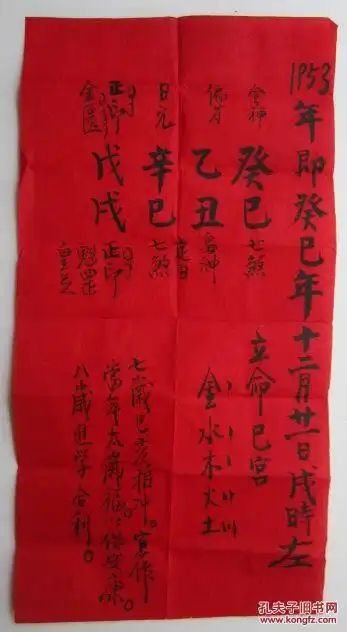 1953年即癸巳年十二月廿一日戌時左
立命巳宮
金水木火土
食神 癸巳 七煞
偏才 乙丑 食神
日元 辛巳 七煞
正印 戊戌 正印
金匱
魁罡
七歲巳亥相冲。宜作
當年太歲福
八歲進學合利。
孔夫子旧书网
www.kongfz.com